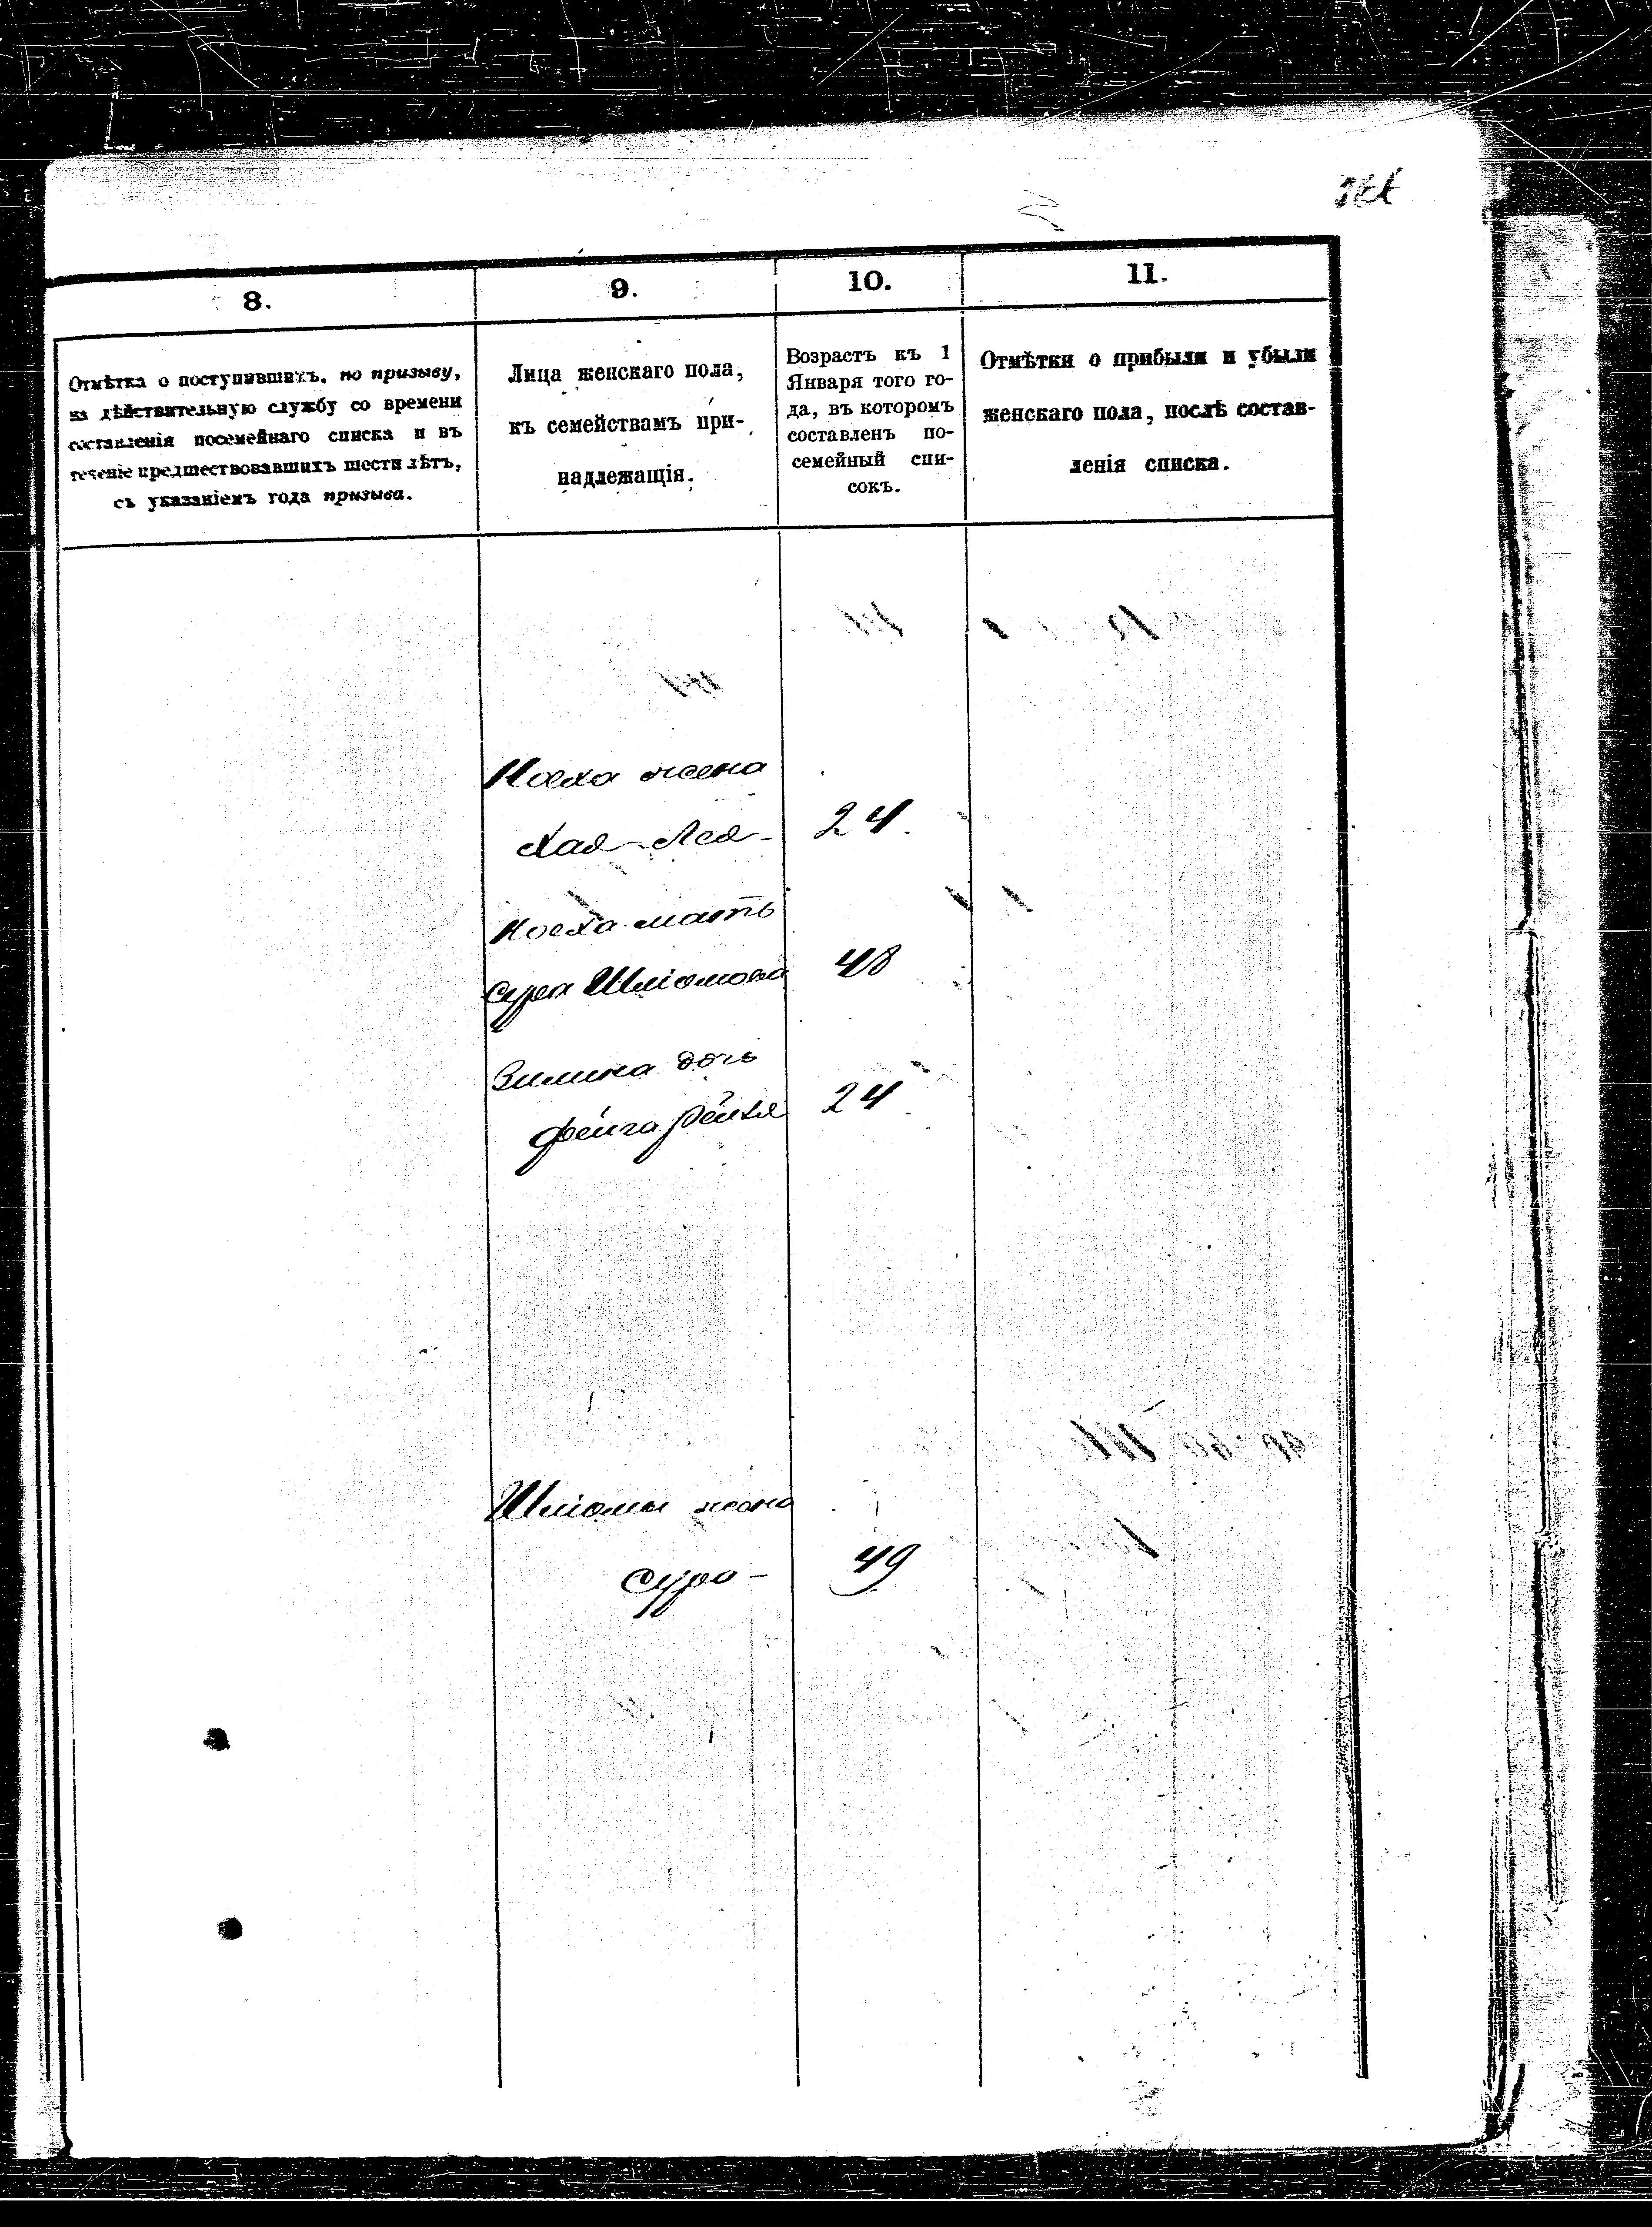 8.
9.
10.
11.
Отмѣтка о поступившихъ, по призыву,
на дѣйствительную службу со времени
составленія посемейнаго списка и въ
теченіе предшествовавшихъ шести лѣтъ,
съ указаніемъ года призыва.
Лица женскаго пола,
къ семействамъ при-
надлежащія.
Возрастъ къ 1
Января того го-
да, въ которомъ
составленъ по-
семейный спи-
сокъ.
Отмѣтки о прибыли и убыли
женскаго пола, послѣ состав-
ленія списка.
Ноеха жена
Хая-Лея- 24.
Ноеха мать
Сура Шліомова 48
Зимина дочь
Фейга Рейзя 24
Шліомы жена
Сура- 49